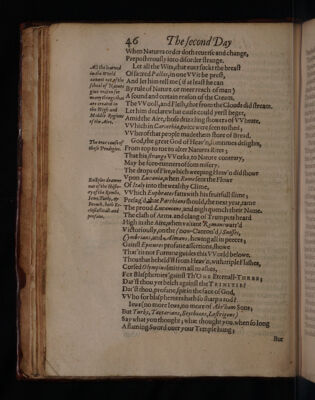 46 The second Day
When Natures order doth reuerse and change,
Preposterously into disorder strange.
Let all the Wits, that euer suckt the breast
Of sacred Pallas, in one Wit be prest,
And let him tell me (if at least he can
By rule of Nature, or meer reach of man)
A sound and certain reason of the Cream,
The VVooll, and Flesh, that from the Clouds did stream.
Let him declare what cause could yerst beget,
Amid the Aire, those drizzling showers of VVheate,
VVhich in Carinthia, twice were seen to shed;
VVherof that people made them store of Bread.
God, the great God of Heav'n, sometimes delights,
From top to toe to alter Natures Rites;
That his strange VVorks, to Nature contrary,
May be fore-runners of som misery.
The drops of Fire, which weeping Heav'n did showr
Vpon Lucania, when Rome sent the Flour
Of Italy into the wealthy Clime,
VVhich Euphrates fatts with his fruitfull slime;
Presag'd, that Parthians should, the next year, tame
The proud Lucanians, and nigh quench their Name.
The clash of Arms, and clang of Trumpets heard
High in the Aire, when valiant Romans warr'd
Victoriously, on the (now-Canton'd) Suisses,
Cymbrians, and Almans, hewing all in peeces;
Gainst Epicures profane assertions, showe
That 'tis not Fortune guides this VVorld belowe.
Thou that beheld'st from Heav'n, with triple Flashes,
Cursed Olympius smitten all to ashes,
For Blasphemies 'gainst Th'ONE Eternall-THREE;
Dar'st thou yet belch against the TRINITIE?
Dar'st thou, profane, spit in the face of God,
VVho for blasphemers hath so sharp a rod?
Iews (no more Iews, no more of Abr'ham Sons;
But Turks, Tartarians, Scythians, Lestrigons)
Say what you thought; what thought you, when so long
A flaming Sword over your Temple hung;
But
All the learned
in the World
cannot out of the
school of Nature
giue reason for
many things that
are created in
the High and
Middle Regions
of the Aire.
The true cause of
these Prodigies.